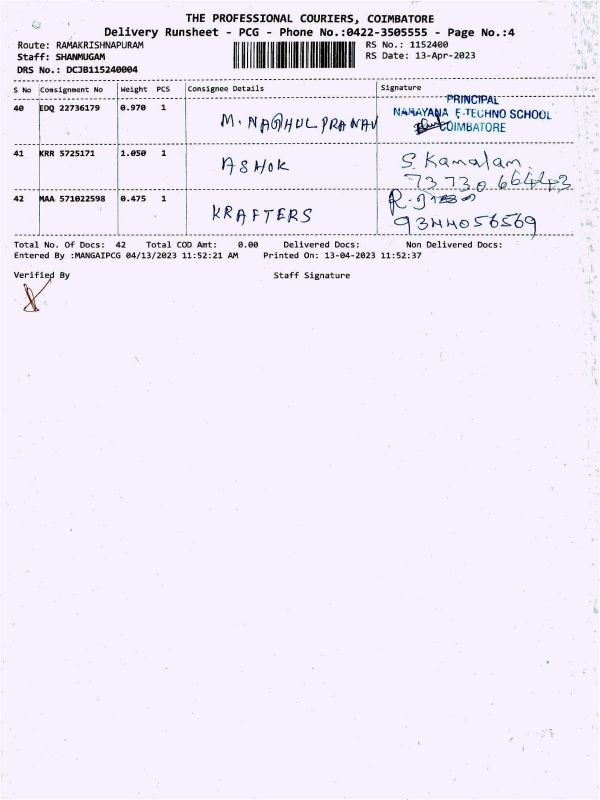 THE PROFESSIONAL COURIERS, COIMBATORE
Delivery Runsheet - PCG - Phone No.:0422-3505555 - Page No.:4
Route: RAMAKRISHNAPURAM RS No.: 1152400
Staff: SHANMUGAM RS Date: 13-Apr-2023
DRS No.: DCJB115240004
S No Consignment No Weight PCS Consignee Details Signature
40 EDQ 22736179 0.970 1 M. NAGHUL PRANAV
PRINCIPAL
NARAYANA E-TECHNO SCHOOL
COIMBATORE
41 KRR 5725171 1.050 1 ASHOK S. Kamalam
73730 66443
42 MAA 571022598 0.475 1 KRAFTERS R.
9344056569
Total No. Of Docs: 42 Total COD Amt: 0.00 Delivered Docs: Non Delivered Docs:
Entered By :MANGAIPCG 04/13/2023 11:52:21 AM Printed On: 13-04-2023 11:52:37
Verified By Staff Signature